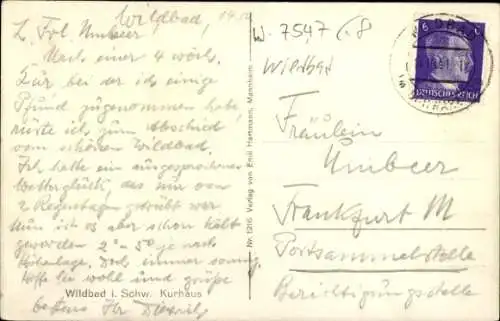 Wildbad, 14.10.
L. Frl. Umbeer!
Nach einer 4 wöch.
Kur bei der ich einige
Pfund zugenommen habe
müsste ich zum Abschied
vom schönen Wildbad.
Ich hatte ein ausgesprochenes
Wetterglück, das nur von
2 Regentagen getrübt war
Nun ist es aber schon kalt
geworden 2°-5° je nach
Höhenlage. Doch immer sonnig
Hoffe Sie wohl und grüße
bestens Ihr
Wildbad i. Schw. Kurhaus
Nr. 1216 Verlag von Emil Hartmann, Mannheim
W. 7547 8
Wildbad
6
DEUTSCHES REICH
Fräulein
Umbeer
Frankfurt M
Portsammelstelle
Berichtigungsstelle